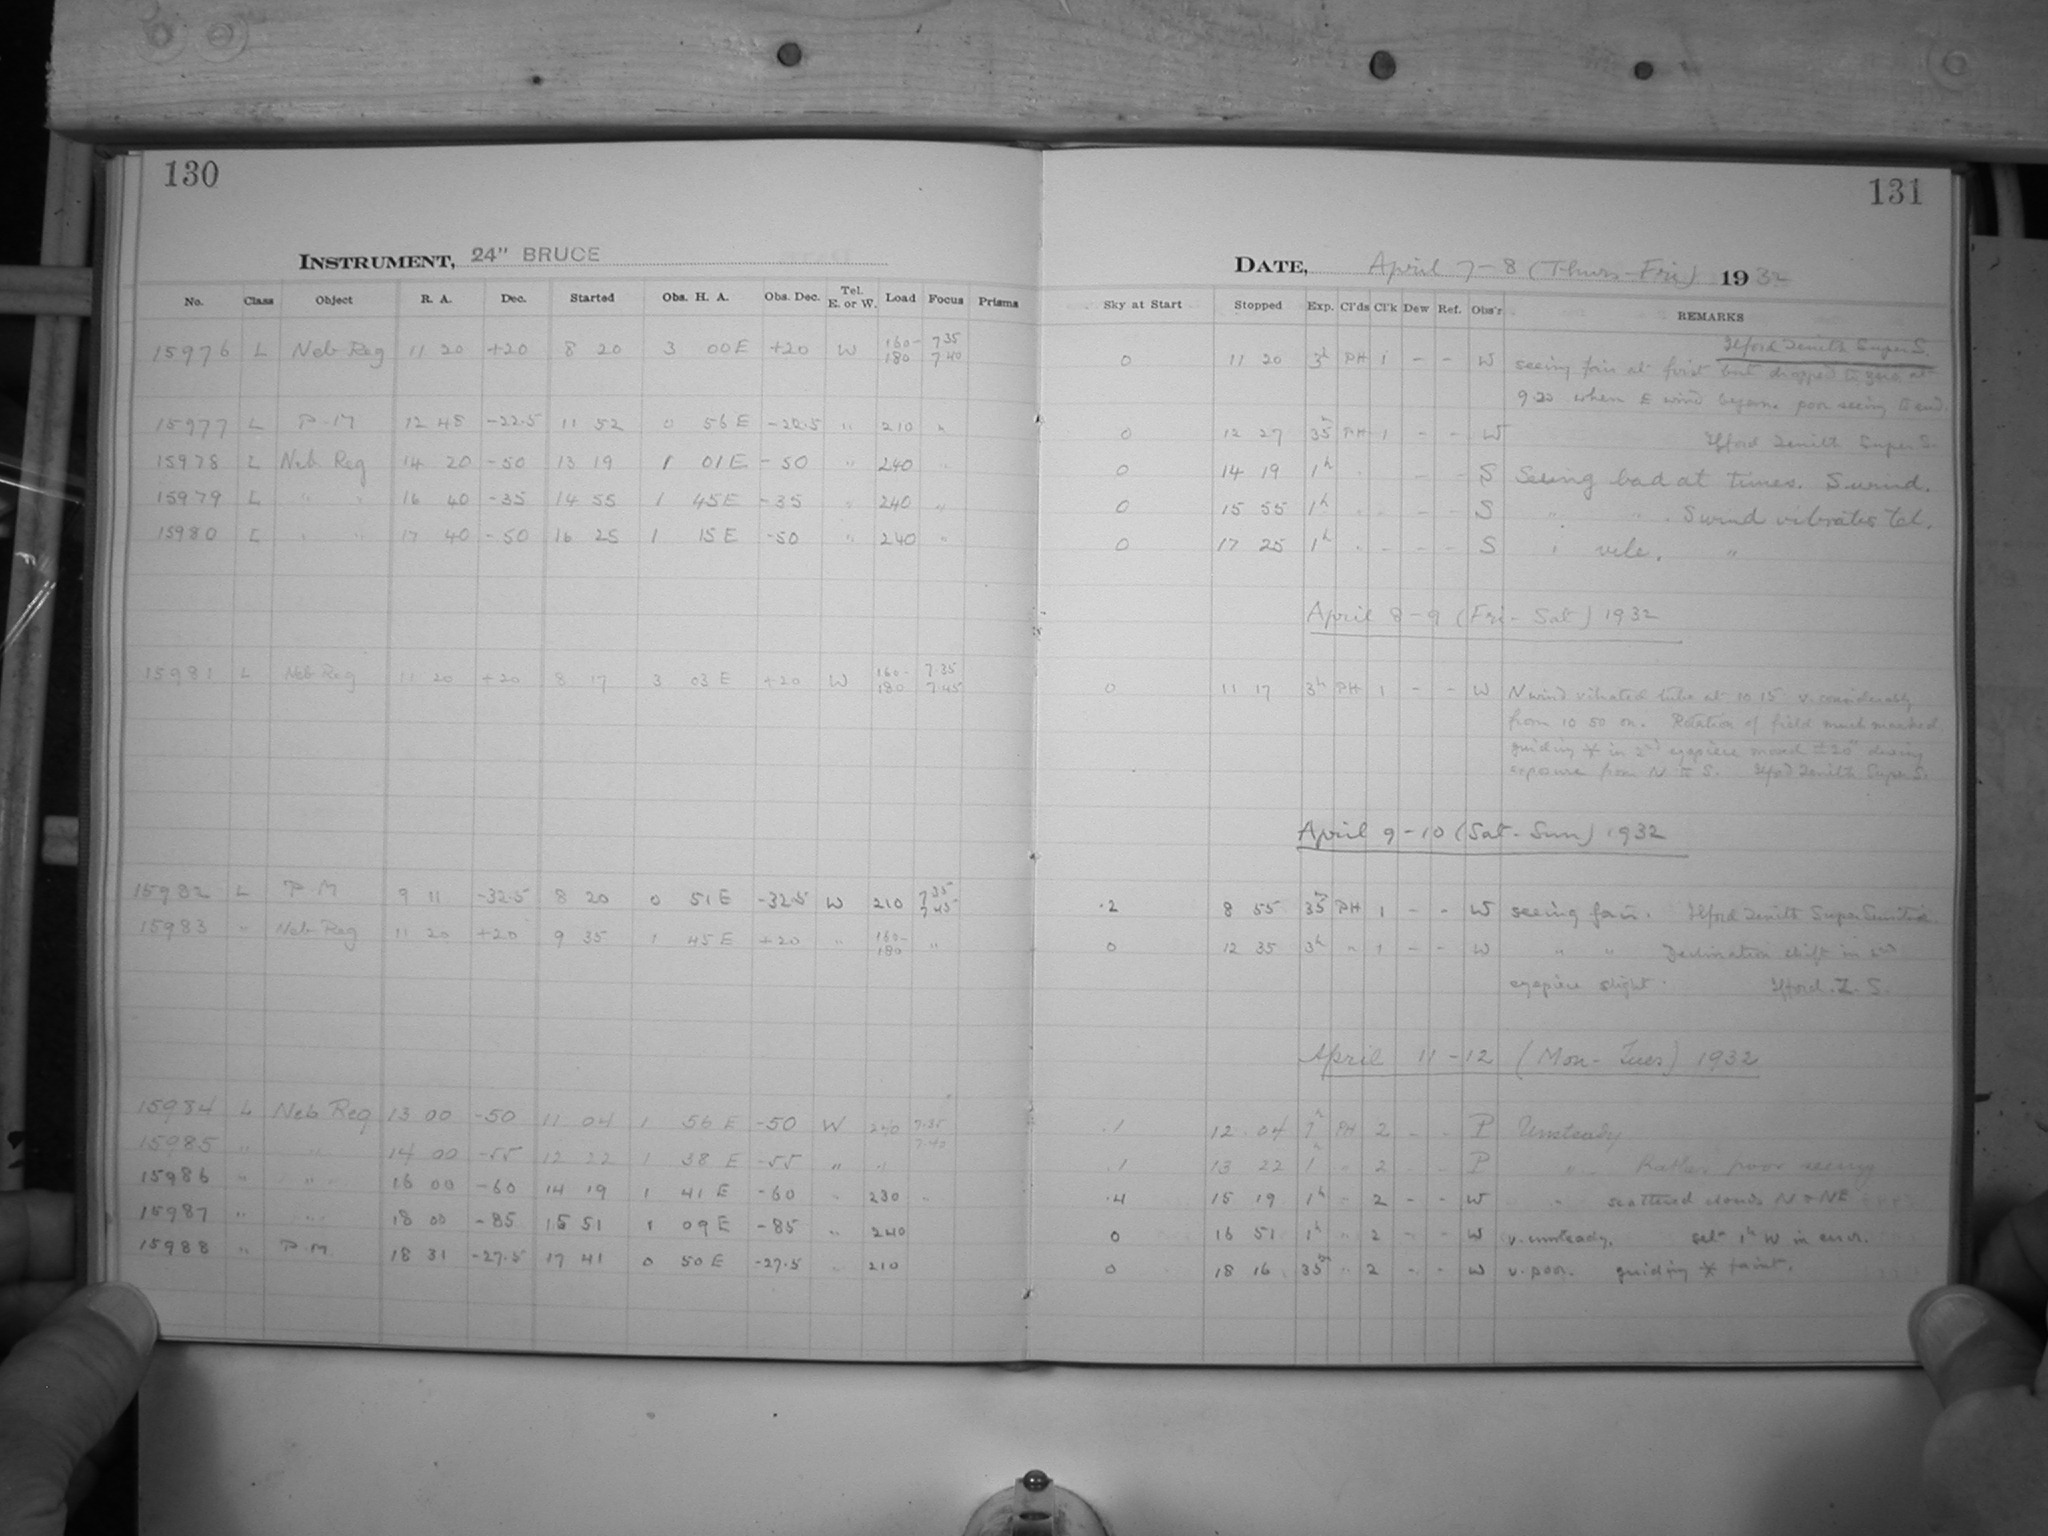 130
131
INSTRUMENT, 24" BRUCE
DATE, April 7-8 (Thurs-Fri) 1932
No. Class Object R. A. Dec. Started Obs. H. A. Obs. Dec. Tel. E. or W. Load Focus Prisms Sky at Start Stopped Exp. Cl'ds Cl'k Dew Ref. Obs'r REMARKS
15976 L Neb Reg 11 20 +20 8 20 3 00 E +20 W 160-180 7.35 7.40 0 11 20 3h PH 1 - - W Ilford Zenith Super S.
seeing fair at first but dropped to zero at
9.20 when E wind began. poor seeing to end.
15977 L P.M 12 48 -22.5 11 52 0 56 E -22.5 " 210 " 0 12 27 35m PH 1 - - W Ilford Zenith Super S.
15978 L Neb Reg 14 20 -50 13 19 1 01 E -50 " 240 " 0 14 19 1h - - S Seeing bad at times. S wind.
15979 L " " 16 40 -35 14 55 1 45 E -35 " 240 " 0 15 55 1h - - S " " . S wind vibrates tel.
15980 L " " 17 40 -50 16 25 1 15 E -50 " 240 " 0 17 25 1h - - - S " vile. "
April 8-9 (Fri-Sat) 1932
15981 L Neb Reg 11 20 +20 8 17 3 03 E +20 W 160-180 7.35 7.45 0 11 17 3h PH 1 - - W N wind vibrated tube at 10 15 v. considerably
from 10 50 on. Rotation of field much marked
guiding * in 2nd eyepiece moved ±20" during
exposure from N to S. Ilford Zenith Super S.
April 9-10 (Sat-Sun) 1932
15982 L P.M 9 11 -32.5 8 20 0 51 E -32.5 W 210 7.35 7.45 .2 8 55 35m PH 1 - - W seeing fair. Ilford Zenith Super Sensitive
15983 " Neb Reg 11 20 +20 9 35 1 45 E +20 " 160-180 " 0 12 35 3h " 1 - - W " " Declination shift in 2nd
eyepiece slight. Ilford. Z. S.
April 11-12 (Mon-Tues) 1932
15984 L Neb Reg 13 00 -50 11 04 1 56 E -50 W 240 7.35 7.40 .1 12 04 1h PH 2 - - P Unsteady
15985 " " 14 00 -55 12 22 1 38 E -55 " " .1 13 22 1h " 2 - - P " Rather poor seeing
15986 " " 16 00 -60 14 19 1 41 E -60 " 230 " .4 15 19 1h " 2 - - W " scattered clouds N & NE
15987 " " 18 00 -85 15 51 1 09 E -85 " 240 0 16 51 1h " 2 - - W v. unsteady. set 1h W in error.
15988 " P.M 18 31 -27.5 17 41 0 50 E -27.5 " 210 0 18 16 35m " 2 - - W v. poor. guiding * faint.